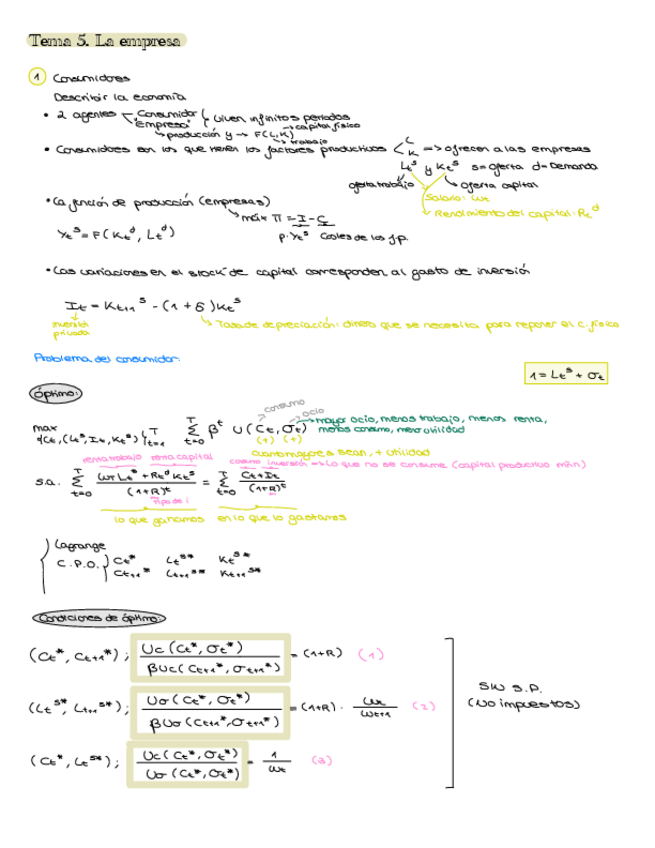 Tema 5. La empresa
1 Consumidores
Describir la economía
• 2 agentes Consumidor Empresa viven infinitos periodos
producción y → F(L,K) capital físico trabajo
• Consumidores son los que tienen los factores productivos < L K => ofrecen a las empresas
Lt^s y Kt^s s=oferta d=Demanda
oferta trabajo oferta capital
Salario: wt
Rendimiento del capital: Rt^d
• La función de producción (empresas)
máx π = I - C
Yt^s = F(Kt^d, Lt^d)
p·Yt^s Costes de los f.p.
• Las variaciones en el stock de capital corresponden al gasto de inversión
It = Kt+1^s - (1+δ)Kt^s
inversión privada
Tasa de depreciación: dinero que se necesita para reponer el c. físico
Problema del consumidor:
1 = Lt^s + σt
Óptimo:
consumo
ocio
max {Ct, (Lt^s, It, Kt^s)}_{t=1}^T Σ_{t=0}^T β^t U(Ct, σt)
mayor ocio, menos trabajo, menos renta, menos consumo, menor utilidad
(+) (+)
cuanto mayores sean, + utilidad
renta trabajo renta capital
consumo inversión → lo que no se consume (capital productivo mañn)
s.a. Σ_{t=0}^T (wt Lt^s + Rt^d Kt^s)/(1+R)^t = Σ_{t=0}^T (Ct+It)/(1+R)^t
Tipo de i
lo que ganamos en lo que lo gastamos
Lagrange
C.P.O. Ct* Lt^s* Kt^s*
Ct+1* Lt+1^s* Kt+1^s*
Condiciones de óptimo:
(Ct*, Ct+1*); Uc(Ct*, σt*)/βUc(Ct+1*, σt+1*) = (1+R) (1)
(Lt^s*, Lt+1^s*); Uσ(Ct*, σt*)/βUσ(Ct+1*, σt+1*) = (1+R) · wt/wt+1 (2)
(Ct*, Lt^s*); Uc(Ct*, σt*)/Uσ(Ct*, σt*) = 1/wt (3)
SIN S.P.
(No impuestos)